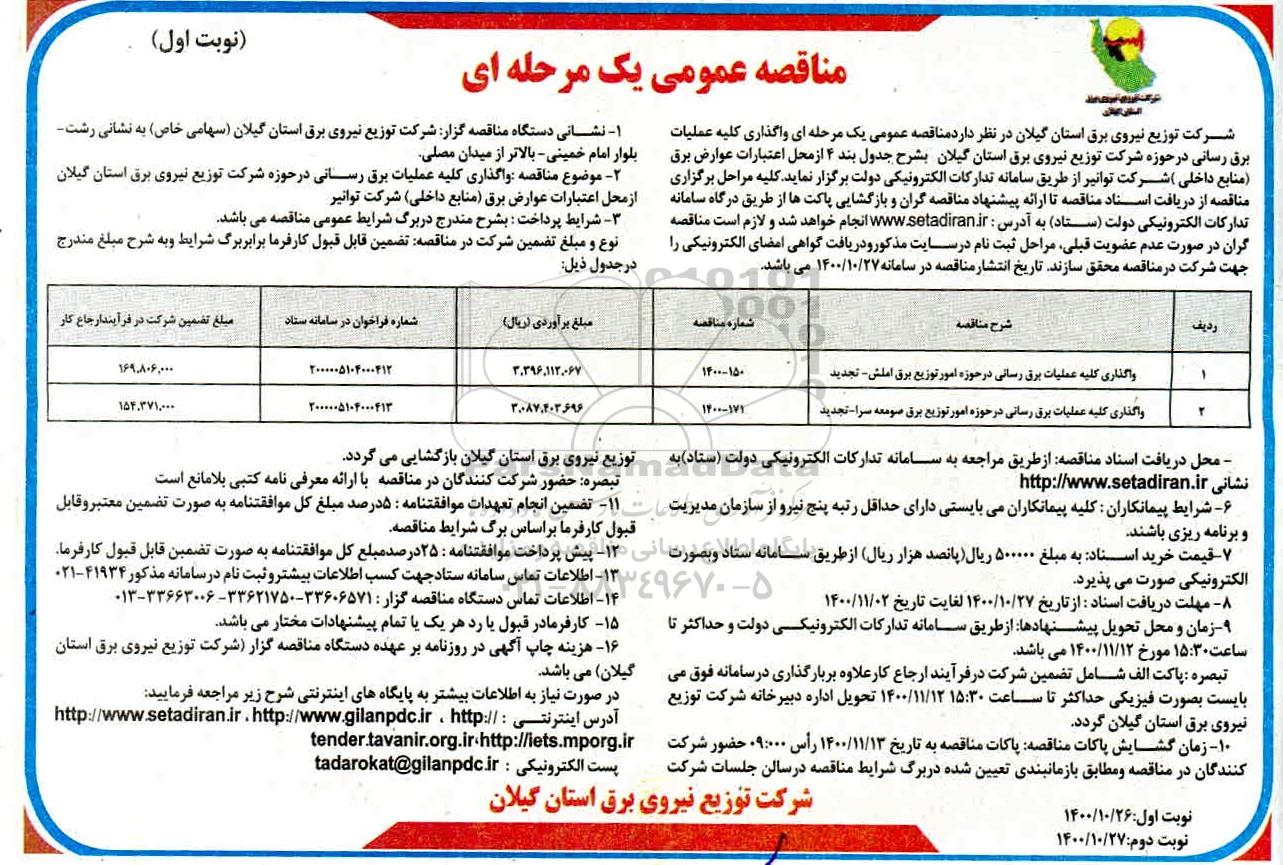 (نوبت اول)
مناقصه عمومی یک مرحله ای
شرکت توزیع نیروی برق
استان گیلان
شـــرکت توزیع نیروی برق استان گیلان در نظر داردمناقصه عمومی یک مرحله ای واگذاری کلیه عملیات
برق رسانی درحوزه شرکت توزیع نیروی برق استان گیلان بشرح جدول بند ۴ ازمحل اعتبارات عوارض برق
(منابع داخلی )شــرکت توانیر از طریق سامانه تدارکات الکترونیکی دولت برگزار نماید.کلیه مراحل برگزاری
مناقصه از دریافت اسناد مناقصه تا ارائه پیشنهاد مناقصه گران و بازگشایی پاکت ها از طریق درگاه سامانه
تدارکات الکترونیکی دولت (ستاد) به آدرس : www.setadiran.ir انجام خواهد شد و لازم است مناقصه
گران در صورت عدم عضویت قبلی، مراحل ثبت نام درسایت مذکورودریافت گواهی امضای الکترونیکی را
جهت شرکت درمناقصه محقق سازند. تاریخ انتشارمناقصه در سامانه۱۴۰۰/۱۰/۲۷ می باشد.
۱- نشــانی دستگاه مناقصه گزار: شرکت توزیع نیروی برق استان گیلان (سهامی خاص) به نشانی رشت-
بلوار امام خمینی- بالاتر از میدان مصلی.
۲- موضوع مناقصه :واگذاری کلیه عملیات برق رســانی درحوزه شرکت توزیع نیروی برق استان گیلان
ازمحل اعتبارات عوارض برق (منابع داخلی) شرکت توانیر
۳- شرایط پرداخت : بشرح مندرج دربرگ شرایط عمومی مناقصه می باشد.
نوع و مبلغ تضمین شرکت در مناقصه: تضمین قابل قبول کارفرما برابربرگ شرایط وبه شرح مبلغ مندرج
درجدول ذیل:
ردیف شرح مناقصه شماره مناقصه مبلغ برآوردی (ریال) شماره فراخوان در سامانه ستاد مبلغ تضمین شرکت در فرآیندارجاع کار
۱ واگذاری کلیه عملیات برق رسانی درحوزه امورتوزیع برق املش- تجدید ۱۴۰۰-۱۵۰ ۳،۳۹۶،۱۱۲،۰۶۷ ۲۰۰۰۰۰۵۱۰۴۰۰۰۴۱۲ ۱۶۹،۸۰۶،۰۰۰
۲ واگذاری کلیه عملیات برق رسانی درحوزه امورتوزیع برق صومعه سرا-تجدید ۱۴۰۰-۱۷۱ ۳،۰۸۷،۴۰۳،۶۹۶ ۲۰۰۰۰۰۵۱۰۴۰۰۰۴۱۳ ۱۵۴،۳۷۱،۰۰۰
ParsNamadData
پایگاه اطلاع رسانی مناقصه و مزایده
۰۲۱-۸۸۳۴۹۶۷۰-۵
- محل دریافت اسناد مناقصه: ازطریق مراجعه به ســامانه تدارکات الکترونیکی دولت (ستاد)به
نشانی http://www.setadiran.ir
۶- شرایط پیمانکاران : کلیه پیمانکاران می بایستی دارای حداقل رتبه پنج نیرو از سازمان مدیریت
و برنامه ریزی باشند.
۷-قیمت خرید اســناد: به مبلغ ۵۰۰۰۰۰ ریال(پانصد هزار ریال) ازطریق ســامانه ستاد وبصورت
الکترونیکی صورت می پذیرد.
۸- مهلت دریافت اسناد : ازتاریخ ۱۴۰۰/۱۰/۲۷ لغایت تاریخ ۱۴۰۰/۱۱/۰۲
۹-زمان و محل تحویل پیشــنهادها: ازطریق ســامانه تدارکات الکترونیکــی دولت و حداکثر تا
ساعت۱۵:۳۰ مورخ ۱۴۰۰/۱۱/۱۲ می باشد.
تبصره :پاکت الف شــامل تضمین شرکت درفرآیند ارجاع کارعلاوه بربارگذاری درسامانه فوق می
بایست بصورت فیزیکی حداکثر تا ســاعت ۱۵:۳۰ ۱۴۰۰/۱۱/۱۲ تحویل اداره دبیرخانه شرکت توزیع
نیروی برق استان گیلان گردد.
۱۰- زمان گشــایش پاکات مناقصه: پاکات مناقصه به تاریخ ۱۴۰۰/۱۱/۱۳ رأس ۰۹:۰۰۰ حضور شرکت
کنندگان در مناقصه ومطابق بازمانبندی تعیین شده دربرگ شرایط مناقصه درسالن جلسات شرکت
توزیع نیروی برق استان گیلان بازگشایی می گردد.
تبصره: حضور شرکت کنندگان در مناقصه با ارائه معرفی نامه کتبی بلامانع است
۱۱- تضمین انجام تعهدات موافقتنامه : ۵درصد مبلغ کل موافقتنامه به صورت تضمین معتبروقابل
قبول کارفرما براساس برگ شرایط مناقصه.
۱۲-پیش پرداخت موافقتنامه : ۲۵درصدمبلغ کل موافقتنامه به صورت تضمین قابل قبول کارفرما.
۱۳-اطلاعات تماس سامانه ستادجهت کسب اطلاعات بیشتروثبت نام درسامانه مذکور۴۱۹۳۴-۰۲۱
۱۴- اطلاعات تماس دستگاه مناقصه گزار : ۳۳۶۰۶۵۷۱-۳۳۶۲۱۷۵۰- ۳۳۶۶۳۰۰۶-۰۱۳
۱۵- کارفرمادر قبول یا رد هر یک یا تمام پیشنهادات مختار می باشد.
۱۶- هزینه چاپ آگهی در روزنامه بر عهده دستگاه مناقصه گزار (شرکت توزیع نیروی برق استان
گیلان) می باشد.
در صورت نیاز به اطلاعات بیشتر به پایگاه های اینترنتی شرح زیر مراجعه فرمایید:
آدرس اینترنتــی : http://www.setadiran.ir ، http://www.gilanpdc.ir ، http://
tender.tavanir.org.ir،http://iets.mporg.ir
پست الکترونیکی : tadarokat@gilanpdc.ir
شرکت توزیع نیروی برق استان گیلان
نوبت اول:۱۴۰۰/۱۰/۲۶
نوبت دوم:۱۴۰۰/۱۰/۲۷